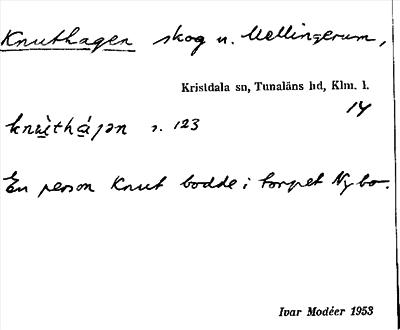 Knuthagen skog u. Mellingerum,
Kristdala sn, Tunaläns hd, Klm. l.
14
knùthá̀gən s. 123
En person Knut bodde i torpet Nybo.
Ivar Modéer 1953